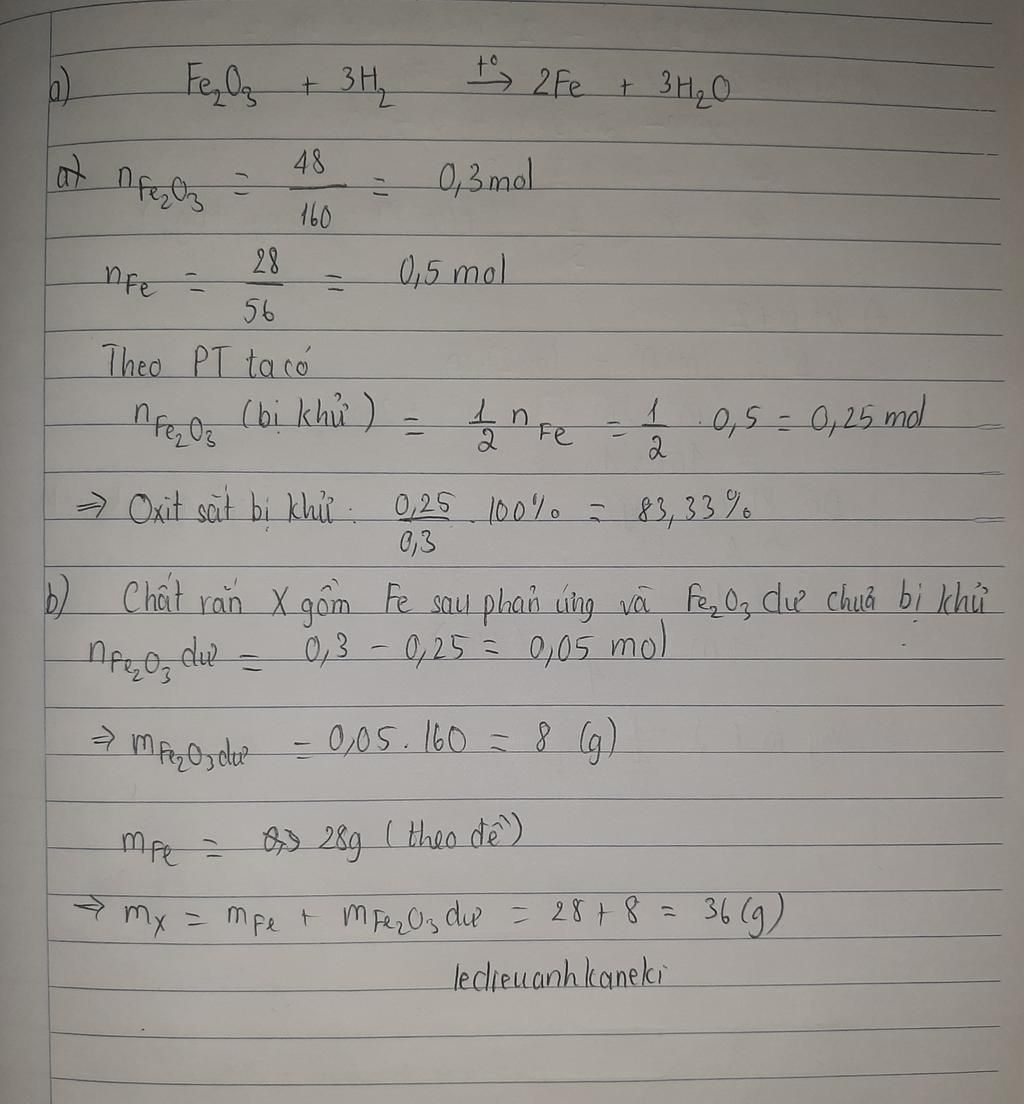 a) Fe₂O₃ + 3H₂ →(t°) 2Fe + 3H₂O
a) nFe₂O₃ = 48/160 = 0,3 mol
nFe = 28/56 = 0,5 mol
Theo PT ta có
nFe₂O₃ (bị khử) = 1/2 nFe = 1/2 . 0,5 = 0,25 mol
⇒ Oxit sắt bị khử : 0,25/0,3 . 100% = 83,33%
b) Chất rắn X gồm Fe sau phản ứng và Fe₂O₃ dư chưa bị khử
nFe₂O₃ dư = 0,3 - 0,25 = 0,05 mol
⇒ mFe₂O₃ dư = 0,05 . 160 = 8 (g)
mFe = 28g (theo đề)
⇒ mX = mFe + mFe₂O₃ dư = 28 + 8 = 36 (g)
ledieuanhkaneki